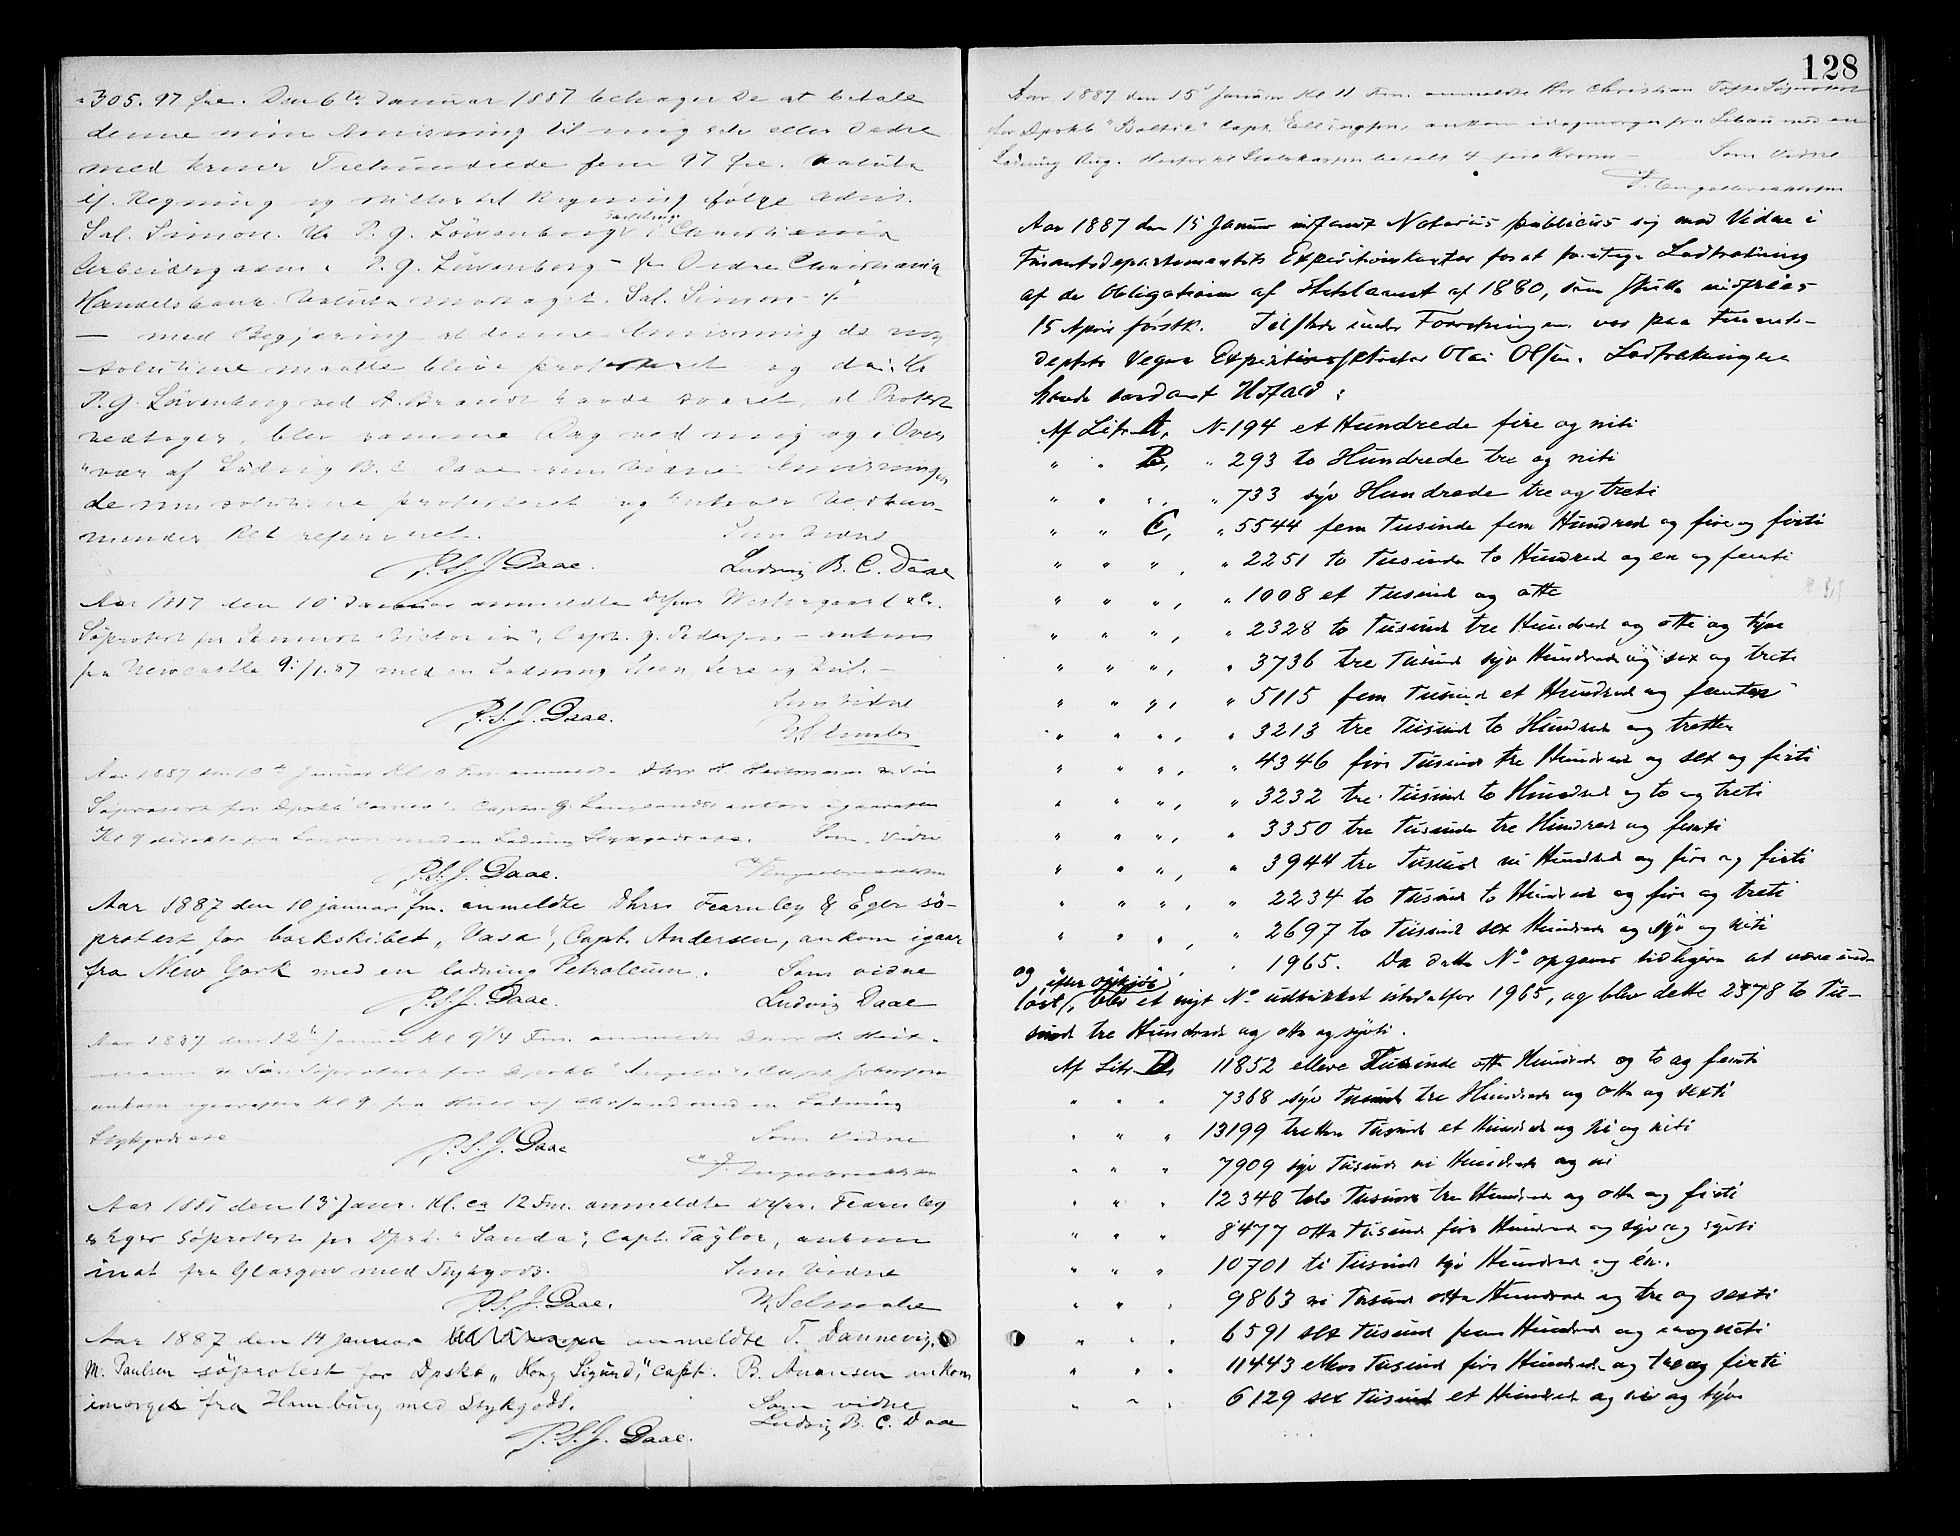 305. 97 øre. Den 6te Januar 1887 behager De at betale
denne min Anvisning til mig selv eller Ordre
med Kroner Trehundrede fem 97 øre. Valuta
if. Regning og stilles til Regning ifølge Advis.
Sal. Simon. Hr P. G. Löwenborg Christiania
Arbeidergaden P. G. Löwenborg Ordre Christiania
Handelsbank. Valuta modtaget. Sal. Simon
— med Begjæring at denne Anvisning de non
solutione maatte blive protesteret og da Hr
P. G. Löwenborg ved A. Brandt havde svaret at Protest
vedtages, blev samme Dag ved mig og i Over
"vær af Ludvig B. C. Daae som Vidne Anvisningen
de non solutione protesteret og enhver Vedkom-
mendes Ret reserveret. Som Vidne
P. S. J. Daae. Ludvig B. C. Daae
Aar 1887 den 10 Januar anmeldte Westergaard & Co.
Söprotest for "Victoria", Capt. J. Pedersen ankom
fra Newcastle 9/1.87 med en Ladning
P. S. J. Daae. Som Vidne
Aar 1887 den 10de Januar Kl 10 Fm. anmeldte Dhrr H. Heitmann & Sön
Söprotest for Dpskb "Cameo". Capt. G. ankom igaaraftes
Kl 9 fra London med en Ladning Stykgods. Som Vidne
P. S. J. Daae.
Aar 1887 den 10 januar fm. anmeldte Dhrr Fearnley & Eger sö-
protest for barkskibet "Vasa", Capt. Andersen, ankom igaar
fra New York med en ladning Petroleum. Som vidne
P. S. J. Daae. Ludvig Daae
Aar 1887 den 12te Januar Kl 9 1/4 Fm. anmeldte Dhrr H. Heit-
mann & Sön Söprotest for Dpskb "Angelo", Capt Johnson
ankom igaaraftes Kl 9 fra Hull med en Ladning
Stykgods Som Vidne
P. S. J. Daae
Aar 1887 den 13 Janr. Kl. ca 12 Fm. anmeldte Fearnley
& Eger Söprotest for Dpsk. "Sanda", Capt. Taylor, ankom
inat fra Glasgow med Stykgods. Som Vidne
P. S. J. Daae.
Aar 1887 den 14 januar anmeldte T. Dannevig,
M. Paulsen söprotest for Dpskb "Kong Sigurd", Capt. B. Anonsen ankom
imorges fra Hamburg med Stykgods. Som vidne
P. S. J. Daae. Ludvig B. C. Daae
128
Aar 1887 den 15 Januar Kl 11 Fm. anmeldte Hrr Christian Söprotest
for Dpskb "Baltic" Capt. Ellingsen, ankom idagmorges fra Libau med en
Ladning Rug. betalt 4 fire Kroner Som Vidne
Aar 1887 den 15 Januar indfandt Notarius publicus sig med Vidne i
Finantsdepartementets Expeditionskontor for at foretage Lodtrækning
af de Obligationer af Statslaanet af 1880, som skulle indfries
15 April förstk. Tilstede under Forretningen var paa Finants-
deptets Vegne Expeditionssekretær Olai Olsen. Lodtrækningen
havde saadant Udfald:
Af Litr A, N- 194 et Hundrede fire og niti
" " B, " 293 to Hundrede tre og niti
" " " " 733 syv Hundrede tre og treti
" " C, " 5544 fem Tusinde fem Hundred og fire og firti
" " " " 2251 to Tusinde to Hundred og en og femti
" " " " 1008 et Tusind og otte
" " " " 2328 to Tusind tre Hundred og otte og tyve
" " " " 3736 tre Tusind syv Hundred og sex og treti
" " " " 5115 fem Tusind et Hundred og femten
" " " " 3213 tre Tusind to Hundred og tretten
" " " " 4346 fire Tusind tre Hundred og sex og firti
" " " " 3232 tre Tusind to Hundred og to og treti
" " " " 3350 tre Tusinde tre Hundred og femti
" " " " 3944 tre Tusind ni Hundred og fire og firti
" " " " 2234 to Tusind to Hundred og fire og treti
" " " " 2697 to Tusind sex Hundred og syv og niti
" 1965. Da dette No opgaves tidligere at være ind-
og efter
löst, blev et nyt No udtrukket istedetfor 1965, og blev dette 2378 to Tu-
sind tre Hundrede og otte og sytti.
Af Litr D, 11852 elleve Tusinde otte Hundred og to og femti
" " " 7368 syv Tusind tre Hundrede og otte og sexti
" " " 13199 tretten Tusind et Hundred og ni og niti
" " " 7909 syv Tusind ni Hundrede og ni
" " " 12348 tolv Tusind tre Hundred og otte og firti
" " " 8477 otte Tusind fire Hundred og syv og sytti
" " " 10701 ti Tusind syv Hundred og én.
" " " 9863 ni Tusind otte Hundred og tre og sexti
" " " 6591 sex Tusind fem Hundred og en og niti
" " " 11443 elleve Tusind fire Hundred og tre og firti
" " " 6129 sex Tusind et Hundred og ni og tyve